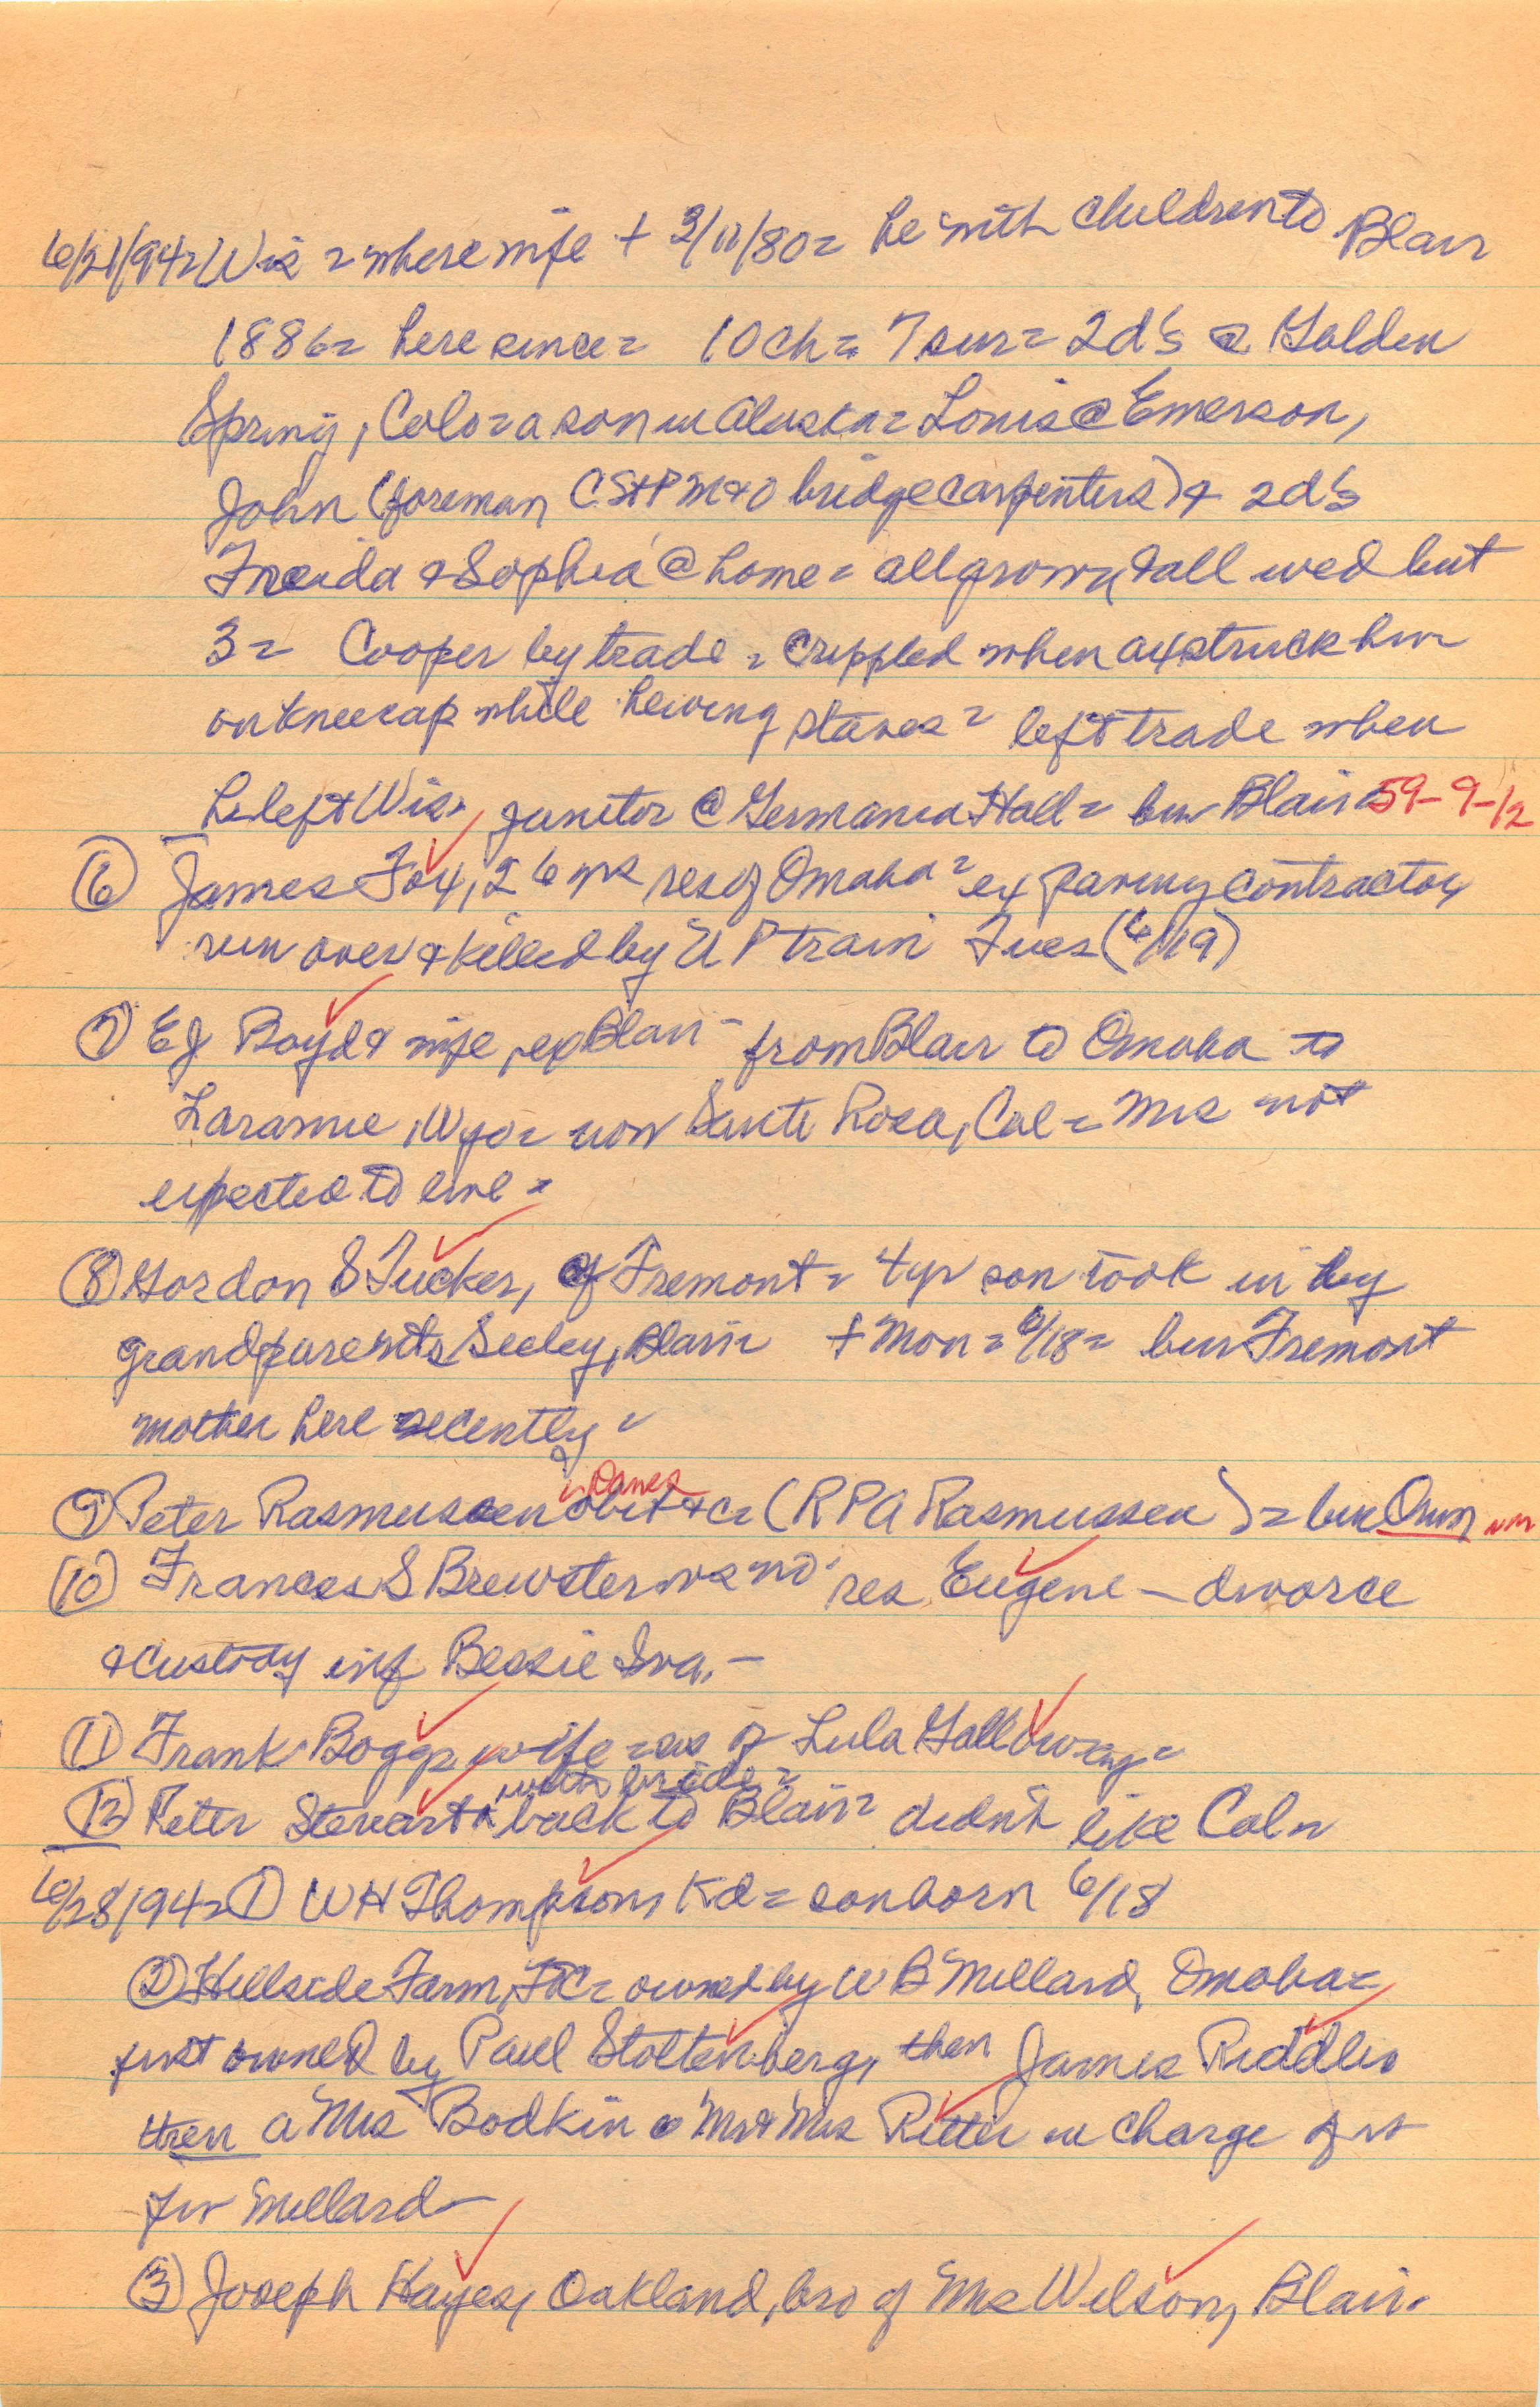 6/21/94= Wis = where wife + 3/11/80= he with children to Blair
1886= here since= 10 ch= 7 sur= 2 d's @ Golden
Spring, Colo= a son in Alaska= Louis @ Emerson,
John (foreman CStPM&O bridge carpenters) & 2 d's
Freida & Sophia @ home= all grown & all wed but
3= Cooper by trade= crippled when ax struck him
on kneecap while hewing staves= left trade when
he left Wis, janitor @ Germania Hall= bur Blair 59-9-12
(6) James Fox, 26 yrs res of Omaha= ex paving contractor,
run over & killed by UP train Tues (6/19)
(7) EJ Boyd & wife, ex Blair - from Blair to Omaha to
Laramie, Wyo= now Santa Rosa, Cal= Mrs not
expected to live=
(8) Gordon S Tucker, of Fremont= 4 yr son took in by
grandparents Seeley, Blair + Mon= 6/18= bur Fremont
mother here recently=
in Danes
(9) Peter Rasmussen obit &c= (RPA Rasmussen)= bur Orum
(10) Frances S Brewster vs no res Eugene - divorce
& custody inf Bessie Iva.-
(11) Frank Boggs wife= as of Lula Galloway=
with bride=
(12) Peter Stewart back to Blair= didn't like Col=
6/28/94= (1) WH Thompson, Kd= son born 6/18
(2) Hillside Farm, FtC= owned by WB Millard, Omaha=
first owned by Paul Stoltenberg, then James Riddler
then a Mrs Bodkin Mr & Mrs Ritter in charge of it
for Millard -
(3) Joseph Hayes, Oakland, bro of Mrs Wilson, Blair.